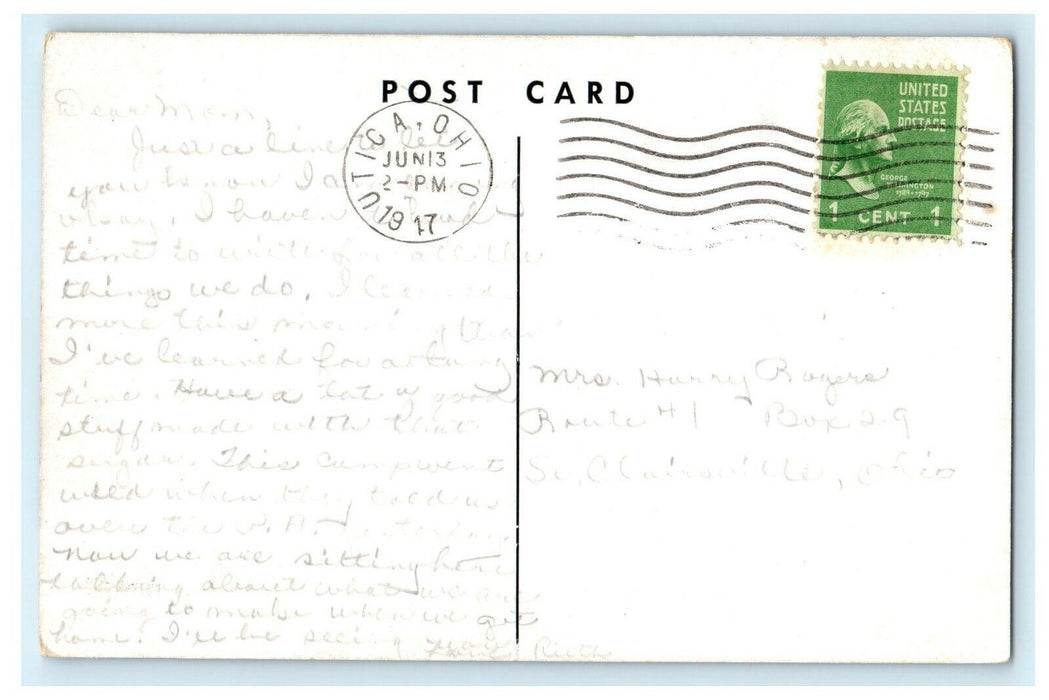 POST CARD
UTICA, OHIO
JUN 13
2-PM
1947
UNITED
STATES
POSTAGE
GEORGE
WASHINGTON
1789-1797
1 CENT 1
Dear Mom,
Just a line to let
you know I am
okay. I haven't had
time to write for all the
things we do. I learned
more this morning than
I've learned for a long
time. Have a lot of good
stuff made with that
sugar. This camp went
wild when they told us
over the P.A. yesterday
Now we are sitting here
talking about what we are
going to make when we get
home. I'll be seeing you
Ruth
Mrs. Harry Rogers
Route #1 Box 29
St. Clairsville, Ohio